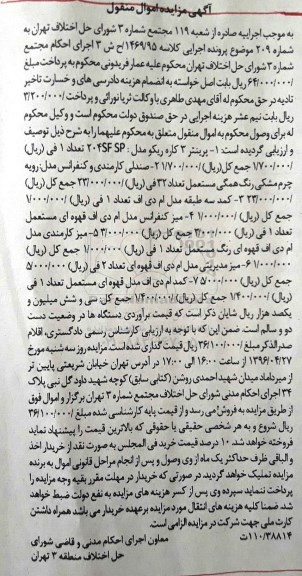 آگهی مزایده اموال منقول
به موجب اجراییه صادره از شعبه ۱۱۹ مجتمع شماره ۳ شورای حل اختلاف تهران به
شماره ۲۰۹ موضوع پرونده اجرایی کلاسه ۱۴۶۹/۹۵/ح ش ۳ اجرای احکام مجتمع
شماره ۳ شورای حل اختلاف تهران محکوم علیه عمار فریدونی محکوم به پرداخت مبلغ
۶۴/۰۰۰/۰۰۰/ ریال بابت اصل خواسته به انضمام هزینه دادرسی های و خسارت تاخیر
تادیه در حق محکوم له آقای مهدی طاهری با وکالت ثریا نورائی و پرداخت ۳/۲۰۰/۰۰۰/
ریال بابت نیم عشر هزینه اجرایی در حق صندوق دولت محکوم است و وکیل محکوم
له برای وصول محکوم به اموال منقول متعلق به محکوم علیهما را به شرح ذیل توصیف
و ارزیابی گردیده است: ۱- پرینتر ۳ کاره ریکو مدل: ۲۰۴SF SP تعداد ۱ فی (ریال)
۱/۷۰۰/۰۰۰/ جمع کل (ریال) ۱/۷۰۰/۰۰۰/ ۲- صندلی کارمندی و کنفرانس مدل: رویه
چرم مشکی رنگ همگی مستعمل تعداد ۳۲ فی (ریال) /۰۰۰/ جمع کل (ریال)
۲۳/۰۰۰/۰۰۰/ ۳- کمد سه طبقه مدل ام دی اف تعداد ۱ فی (ریال) ۱/۰۰۰/۰۰۰/
جمع کل (ریال) ۱/۰۰۰/۰۰۰/ ۴- میز کنفرانس مدل ام دی اف قهوه ای مستعمل
تعداد ۱ فی (ریال) ۳/۰۰۰/۰۰۰/ جمع کل (ریال) ۳/۰۰۰/۰۰۰/ ۵- میز کارمندی مدل
ام دی اف قهوه ای رنگ مستعمل تعداد ۱ فی (ریال) ۱/۰۰۰/۰۰۰/ جمع کل (ریال)
۱/۰۰۰/۰۰۰/ ۶- میز مدیریتی مدل ام دی اف قهوه ای تعداد ۲ فی (ریال)
جمع کل (ریال) ۵/۰۰۰/۰۰۰/ ۷- کمد ام دی اف مدل قهوه ای مستعمل تعداد ۱ فی
(ریال) ۱/۴۰۰/۰۰۰/ جمع کل (ریال) ۱/۴۰۰/۰۰۰/ جمع کل: سی و شش میلیون و
یکصد هزار ریال شایان ذکر است که قیمت برآوردی دستگاه ها در وضعیت دست
دو و سالم است. ضمن این که با توجه به ارزیابی کارشناس رسمی دادگستری، اقلام
صدرالذکر مبلغ ۳۶/۱۰۰/۰۰۰/ ریال قیمت گذاری شده است مزایده روز سه شنبه مورخ
۱۳۹۶/۰۴/۲۷ از ساعت ۱۶:۰۰ الی ۱۷:۰۰ در آدرس تهران خیابان شریعتی پایین تر
از میرداماد میدان شهید احمدی روشن (کتابی سابق) کوچه شهید داود گل نبی پلاک
۳۴ اجرای احکام مدنی شورای حل اختلاف مجتمع شماره ۳ تهران برگزار و اموال فوق
از طریق مزایده به فروش می رسد و از قیمت پایه کارشناسی شده مبلغ ۳۶/۱۰۰/۰۰۰/
ریال شروع و به هر شخص حقیقی یا حقوقی که بالاترین قیمت را پیشنهاد نماید
فروخته خواهد شد. ۱۰ درصد قیمت خرید فی المجلس به صورت نقد از خریدار اخذ
و الباقی ظرف حداکثر یک ماه از وی وصول و پس از انجام مراحل قانونی اموال به برنده
مزایده تملیک خواهد گردید در صورتی که خریدار در مهلت مقرر بقیه وجه مزایده را
پرداخت ننماید سپرده وی پس از کسر هزینه های مزایده به نفع دولت ضبط خواهد
شد. ضمنا کلیه هزینه های انتقال مورد مزایده برعهده خریدار می باشد همراه داشتن
کارت ملی جهت شرکت در مزایده الزامی است.
معاون اجرای احکام مدنی و قاضی شورای
حل اختلاف منطقه ۳ تهران
۱۱۰/۳۸۸۱۴ت